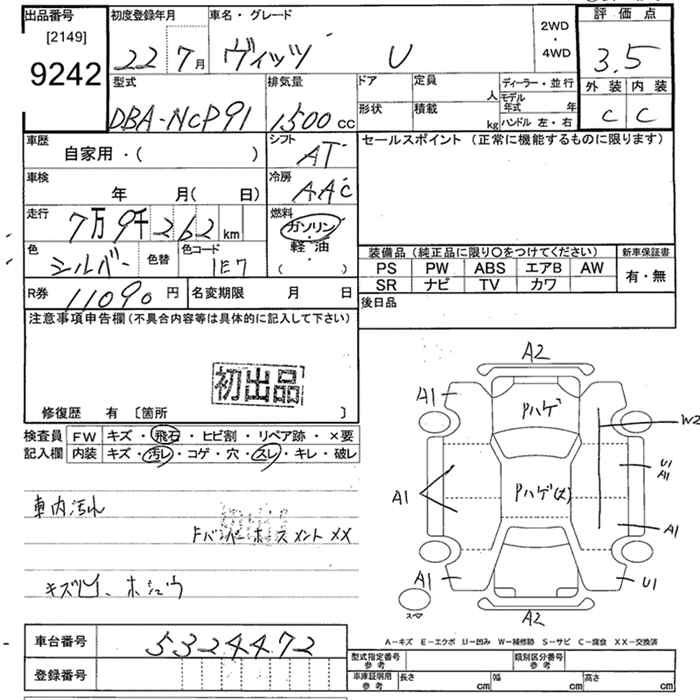 出品番号
[2149]
9242
初度登録年月
22 7月
車名・グレード
ヴィッツ U
2WD
・
4WD
評価点
3.5
外装 内装
C C
型式
DBA-NCP91
排気量
1500 cc
ドア
形状
定員
人
積載
kg
ディーラー・並行
モデル年式 年
ハンドル 左・右
車歴
自家用・( )
シフト
AT
車検
年 月( 日)
冷房
AAC
走行
7万9千262 km
燃料
ガソリン
軽油
( )
色
シルバー
色替
色コード
1E7
R券
11090 円
名変期限 月 日
セールスポイント (正常に機能するものに限ります)
装備品 (純正品に限り〇をつけてください)
新車保証書
PS PW ABS エアB AW
SR ナビ TV カワ
有・無
後日品
注意事項申告欄(不具合内容等は具体的に記入して下さい)
初出品
修復歴 有 〔箇所 〕
検査員記入欄
FW キズ・飛石・ヒビ割・リペア跡・×要
内装 キズ・汚レ・コゲ・穴・スレ・キレ・破レ
車内汚れ
Fバンパーホスメント XX
キズ凹、ホシュウ
A2
A1
Pハゲ
W2
Pハゲ(大)
U1
A1
A1
A1
A1
U1
スペア
A2
A-キズ E-エクボ U-凹み W-補修跡 S-サビ C-腐食 XX-交換済
車台番号
5324472
登録番号
型式指定番号
参考
類別区分番号
参考
車庫証明用
参考
長さ cm
幅 cm
高さ cm